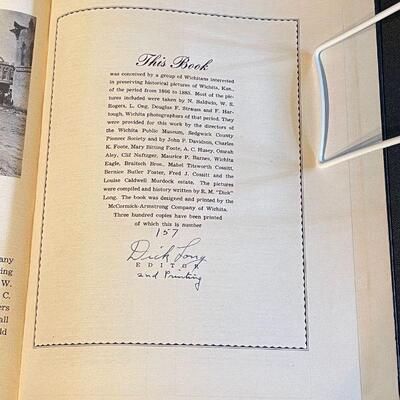 This Book
was conceived by a group of Wichitans interested
in preserving historical pictures of Wichita, Kan.,
of the period from 1866 to 1883. Most of the pic-
tures included were taken by N. Baldwin, W. S.
Rogers, L. Ong, Douglas F. Strauss and F. Har-
tough, Wichita photographers of that period. They
were provided for this work by the directors of
the Wichita Public Museum, Sedgwick County
Pioneer Society and by John P. Davidson, Charles
K. Foote, Mary Bitting Foote, A. C. Husey, Omrah
Aley, Clif Naftzger, Maurice P. Barnes, Wichita
Eagle, Braitsch Bros., Mabel Titsworth Cossitt,
Bernice Butler Foster, Fred J. Cossitt and the
Louise Caldwell Murdock estate. The pictures
were compiled and history written by R. M. "Dick"
Long. The book was designed and printed by the
McCormick-Armstrong Company of Wichita.
Three hundred copies have been printed
of which this is number
157
Dick Long
EDITOR
and Printing
any
ing
W.
C.
ers
all
ld